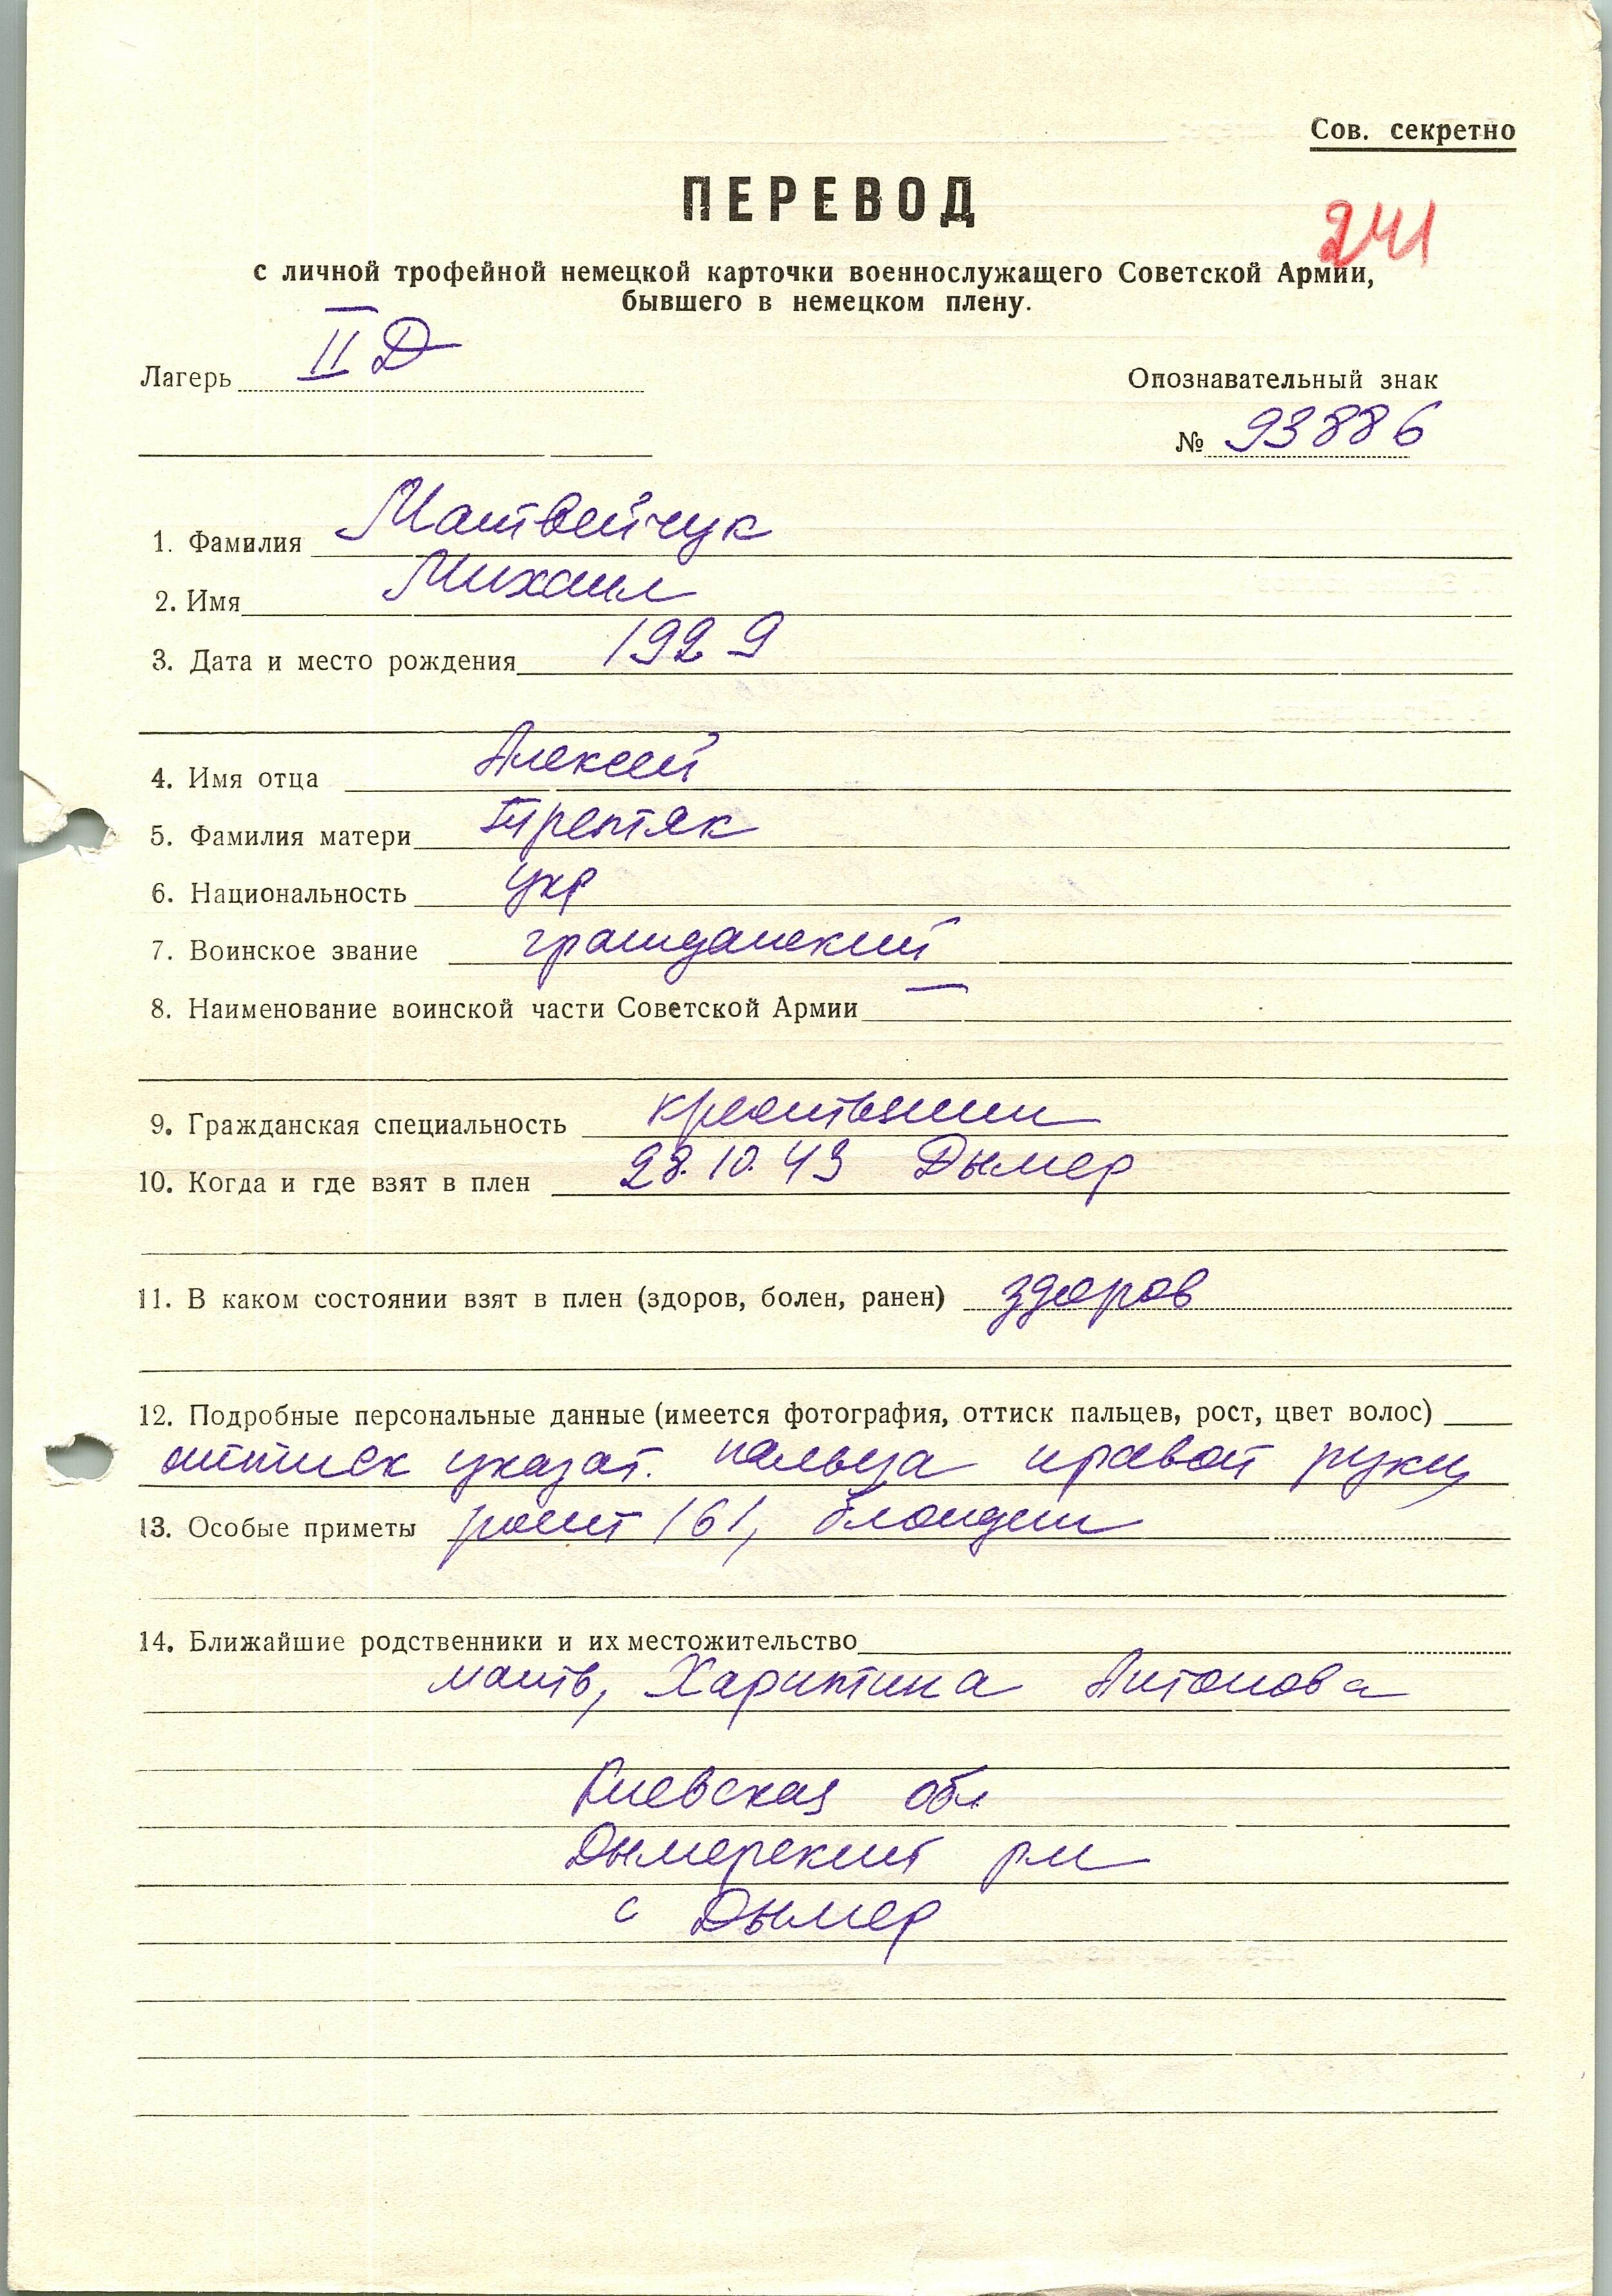 Сов. секретно
ПЕРЕВОД
241
с личной трофейной немецкой карточки военнослужащего Советской Армии,
бывшего в немецком плену.
Лагерь II Д
Опознавательный знак
№ 93886
1. Фамилия Матвейчук
2. Имя Михаил
3. Дата и место рождения 1929
4. Имя отца Алексей
5. Фамилия матери Третяк
6. Национальность укр
7. Воинское звание гражданский
8. Наименование воинской части Советской Армии —
9. Гражданская специальность крестьянин
10. Когда и где взят в плен 28.10.43 Дымер
11. В каком состоянии взят в плен (здоров, болен, ранен) здоров
12. Подробные персональные данные (имеется фотография, оттиск пальцев, рост, цвет волос)
оттиск указат. пальца правой руки
13. Особые приметы рост 161, блондин
14. Ближайшие родственники и их местожительство
мать, Харитина Антонова
Киевская обл
Дымерский рн
с Дымер